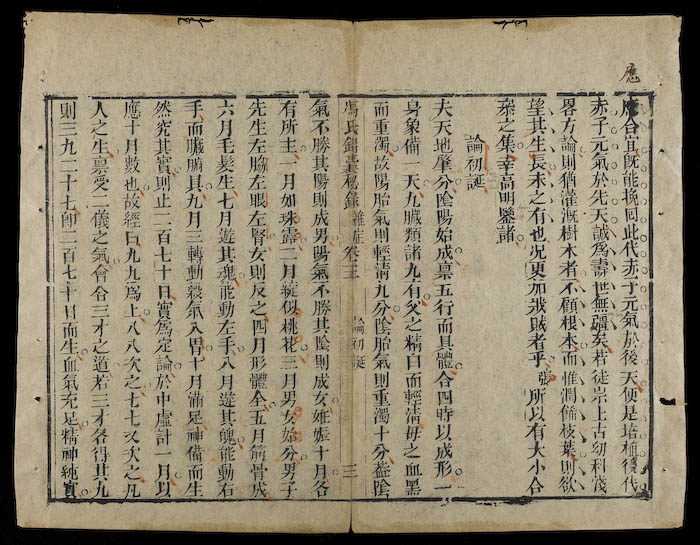 應
應合宜旣能挽回此代赤子元氣於後天便是培植後代
赤子元氣於先天誠爲壽世無疆矣若徒崇上古幼科淺
畧方論則猶灌漑樹木者不顧根本而惟潤餘枝葉則欲
望其生長未之有也况更加戕賊者乎張所以有大小合
叅之集幸高明鑒諸
論初誕
夫天地肇分陰陽始成稟五行而具體合四時以成形一
身象備一天九臟類諸九有父之精白而輕清母之血黑
而重濁故陽胎氣則輕清九分陰胎氣則重濁十分葢陰
馮氏錦囊秘錄 雜症 卷三 論初誕 三
氣不勝其陽則成男陽氣不勝其陰則成女姙娠十月各
有所主一月如珠露二月綻似桃花三月男女始分男子
先生左脇左眼左腎女則反之四月形體全五月筋骨成
六月毛髮生七月遊其魂能動左手八月遊其魄能動右
手而臟腑具九月三轉動穀氣入胃十月滿足神備而生
然究其實則止二百七十日實爲定論於中虛計一月以
應十月數也故經曰九九爲上八八次之七七又次之凡
人之生稟受二儀之氣會合三才之道若三才各得其九
則三九二十七卽二百七十日而生血氣充足精神純實